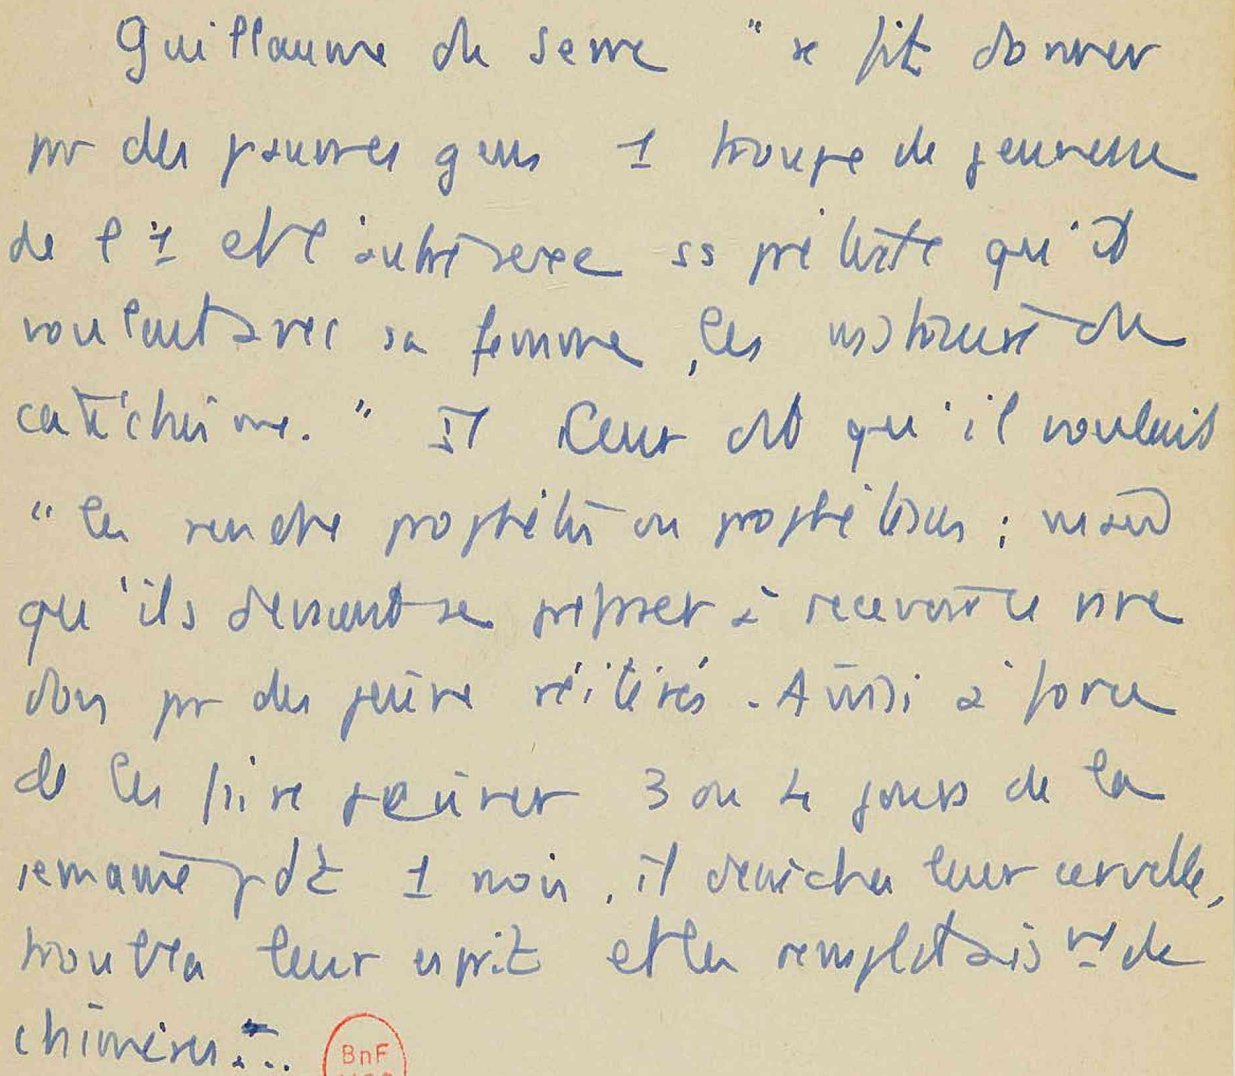 Guillaume du Serre " se fit donner
pr des pauvres gens 1 troupe de jeunesse
de l'1 et l'autre sexe ss prétexte qu'il
voulait avec sa femme, les instruire du
catéchisme. " Il leur dit qu'il voulait
" les rendre prophètes ou prophétesses ; mais
qu'ils devaient se préparer à recevoir ce
don pr des jeûnes réitérés. Ainsi à force
de les faire jeûner 3 ou 4 jours de la
semaine pdt 1 mois, il dessécha leur cervelle,
troubla leur esprit et les remplit aisnt de
chimères...
BnF